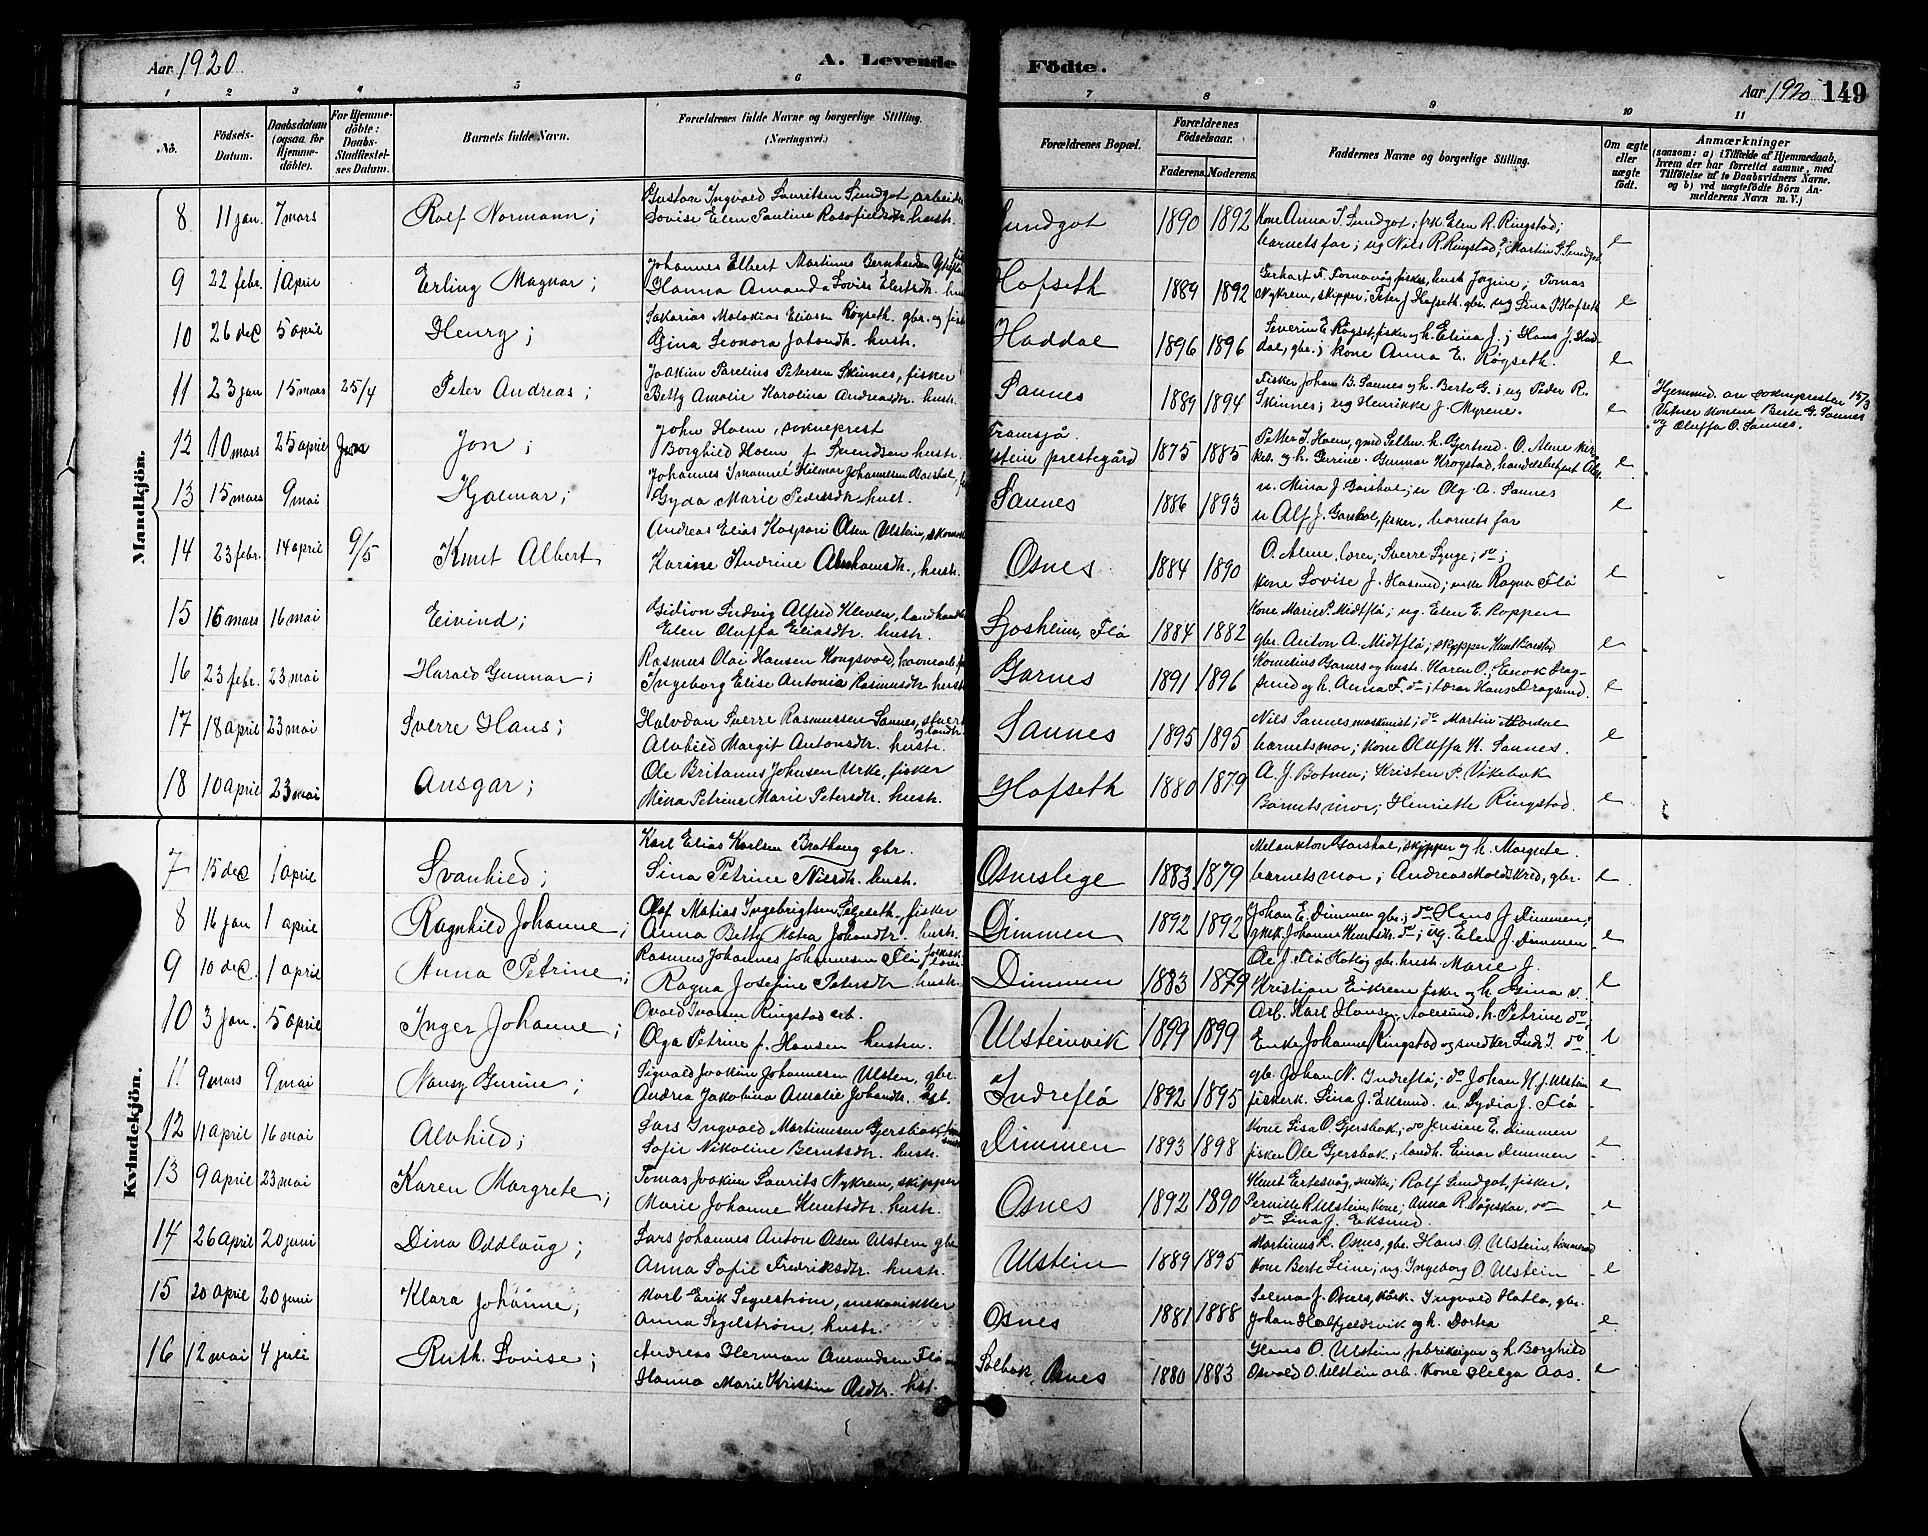 Aar 1920
A. Levende Födte.
Aar 1920 149
1 2 3 4 5 6 7 8 9 10 11
No.
Födsels-Datum.
Daabsdatum (ogsaa for Hjemmedöbte).
For Hjemmedöbte: Daabs-Stadfæstelses Datum.
Barnets fulde Navn.
Forældrenes fulde Navne og borgerlige Stilling. (Næringsvei.)
Forældrenes Bopæl.
Forældrenes Födselsaar.
Faderens. Moderens.
Faddernes Navne og borgerlige Stilling.
Om ægte eller uægte födt.
Anmærkninger
(saasom: a) i Tilfælde af Hjemmedaab,
hvem der har forrettet samme, med
Tilföielse af to Daabsvidners Navne,
og b) ved uægtefödte Börn Anmelderens Navn m. V.)
Mandkjön.
8 11 jan. 7 mars Rolf Normann; Gustav Ingvald Lauritsen Sundgot, arbeider
Lovise Elen Pauline Rasofieldsdtr. hustr.
Sundgot 1890 1892 Kone Anna I. Sundgot; frk Elen R. Ringstad;
barnets far; ug Nils R. Ringstad; Martin G. Sundgot e
9 22 febr. 1 april Erling Magnar; Johannes Elbert Martinus Bernhardsen
Hanna Amanda Lovise Elertsdtr.
Hofseth 1889 1892 Gerhart F. Tornavåg fisker, hustr Jørgine; Tomas
Nykrem, skipper; Peter J. Hofseth. gbr. ug Lina P. Hofseth e
10 26 dec 5 april Henry; Sakarias Malakias Eliasen Røyseth. gbr. og fisk
Gina Leonora Johandtr. hustr.
Haddal 1896 1896 Severin E. Røyset, fisker og h. Elina J.; Hans J. Haddal, gbr.; kone Anna E. Røyseth. e
11 23 jan 15 mars 25/4 Peter Andreas; Joakim Parelius Petersen Skinnes, fisker
Betty Amalie Karolina Andreasdtr. hustr.
Saunes 1889 1894 Fisker Johan B. Saunes og h. Berte G.; ug Peder R.
Skinnes; ug Henrikke J. Myrene. e
Hjemmed. av soknepresten 15/3
Vitner konene Berte G. Saunes
og Oluffa O. Saunes.
12 10 mars 25 april Jon; John Hoem, sokneprest
Borghild Hoem f. Svendsen hustr.
Framsjå
Ulstein prestegård 1875 1885 Petter I. Hoem, h. Gjertrud. O. Alme
og h. Gurine. Gunnar Krogstad, handelsbetjent e
13 15 mars 9 mai Hjalmar; Johannes Imanuel Hilmar Johannesen Garshol,
Gyda Marie Pedersdtr. hust.
Saunes 1886 1893 u. Mina J Garshol; u Olg. A. Saunes
u Alf J. Garshol, fisker, barnets far e
14 23 febr. 14 april 9/5 Knut Albert Andreas Elias Kaspare Olsen Ulstein, skomak
Karine Andrine Abrahamsdtr., hustr.
Osnes 1884 1890 O. Alme, lærer; Sverre Synge; do;
kone Lovise J. Hasund; Ragna Flø e
15 16 mars 16 mai Eivind; Gidion Ludvig Alfred Kleven, landhandler
Elen Oluffa Eliasdtr. hustr.
Ljosheim, Flø 1884 1882 Kone Marie P. Midtflø; ug. Elen E. Roppen
gbr. Anton A. Midtflø; skipper Knut e
16 23 febr. 23 mai Harald Gunnar; Rasmus Olai Hansen Kongsvold, havnearb.
Ingeborg Elise Antonia Rasmusdtr. hustr
Garnes 1891 1896 Kornelius Garnes og hustr. Karen O.; Enok Dragsund og h. Anna F. do; lærar Hans Dragsund. e
17 18 april 23 mai Sverre Hans; Halvdan Sverre Rasmussen Saunes,
Alvhild Margit Antonsdtr. hustr.
Saunes 1895 1895 Nils Saunes maskinist; do Martin Mordal
barnets mor; kone Oluffa K. Saunes. e
18 10 april 23 mai Ansgar; Ole Britanus Johnsen Urke, fisker
Mina Petrine Marie Petersdtr. hustr.
Hofseth 1880 1879 A. J. Botnen; Kristen P. Vikebak
Barnets mor; Henriette Ringstad. e
Kvindekjön.
7 15 dec 1 april Svanhild; Karl Elias Karlsen Brathaug gbr.
Sina Petrine Nilsdtr. hustr.
Osneslege 1883 1879 Melankton Garshol, skipper og h. Margrete.
barnets mor; Andreas Moldskred, gbr. e
8 16 jan 1 april Ragnhild Johanne; Olaf Matias Ingebrigtsen Selseseth, fisker
Anna Betty Katra Johandtr. hustr.
Dimmen 1892 1892 Johan E. Dimmen gbr.; do Hans J. Dimmen;
Johanna Knutsdtr. do; ug. Elen J. Dimmen e
9 10 dec. 1 april Anna Petrine; Rasmus Johannes Johannesen Flø
Ragna Josefine Petersdtr. hustr.
Dimmen 1883 1879 Ole J. Flø Hatløy gbr. hustr. Marie J.
Kristian Eikrem fisker og h. Gina do. e
10 3 jan. 5 april Inger Johanne; Ovald Ivarsen Ringstad arb.
Olga Petrine f. Hansen hustru.
Ulsteinvik 1899 1899 Arb. Karl Hansen Aalesund, h. Petrine do;
Enke Johanne Ringstad og snedker Ludv. I. do e
11 9 mars 9 mai Nansy Gurine; Sigvald Joakim Johannesen Ulstein, gbr.
Andrea Jakobina Amalie Johandtr. hst.
Indreflø 1892 1895 gbr. Johan N. Indreflø; do Johan K. f. Ulstein
fiskerk. Lina J. Eksund. u Lydia J. Flø e
12 11 april 16 mai Alvhild; Lars Ingvald Martinussen Gjersbak,
Sofie Nikoline Berntsdtr. hustr.
Dimmen 1893 1898 Kone Lisa O. Gjersbak; do Jensine E. Dimmen
fisker Ole Gjersbak; landh. Einar Dimmen e
13 9 april 23 mai Karen Margrete; Tomas Joakim Laurits Nykrem, skipper
Marie Johanne Knutsdtr. hustr.
Osnes 1892 1890 Knut Ertesvåg, snedker; Rolf Sundgot, fisker,
Pernille R. Ulstein, kone; Anna R. Vågeskar, do
do Lina J. Eksund. e
14 26 april 20 juni Dina Oddlaug; Lars Johannes Anton Olsen Ulstein gbr
Anna Sofie Fredriksdtr. hustr.
Ulstein 1889 1895 Martinus K. Osnes, gbr. Hans O. Ulstein,
Kone Berte Leine; ug. Ingeborg O. Ulstein e
15 20 april 20 juni Klara Johanne; Karl Erik Segelstrøm, mekanikker
Anna Segelstrøm, hustr.
Osnes 1881 1888 Selma J. Osnes, Ingvald Hatlø, gbr.
Johan Hatfjeldsvik og h. Dortea e
16 12 mai 4 juli Ruth Lovise; Andreas Herman Amundsen Flø
Hanna Marie Kristine Asdtr. hst.
Solbak, Osnes 1880 1883 Hans O. Ulstein fabrikeigar og h. Borghild
Osvald O. Ulstein arb. Kone Helga Aas. e